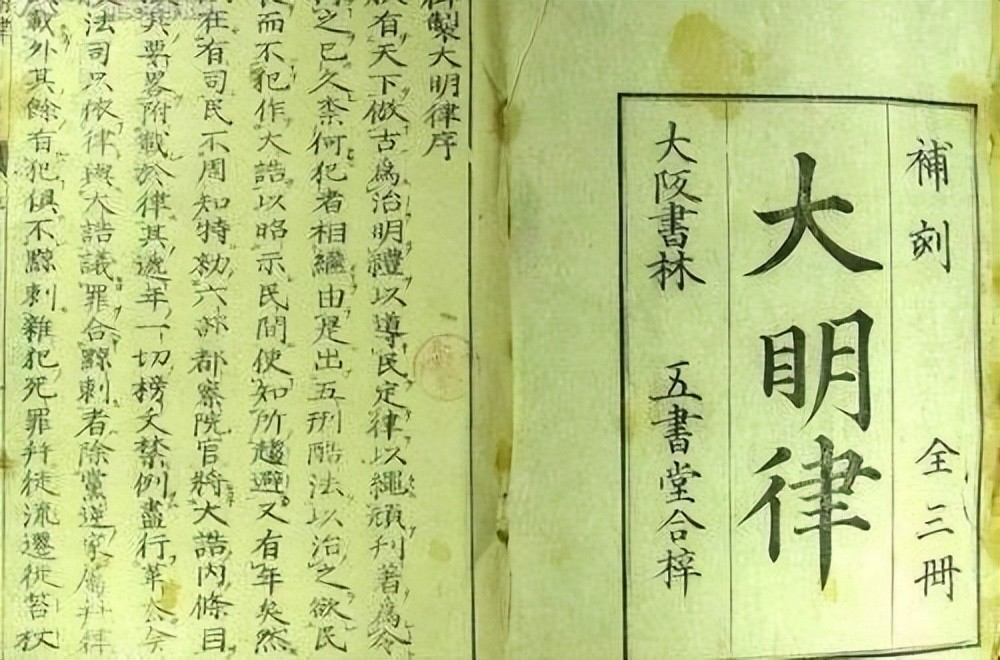 補刻 全三冊
大明律
大阪書林 五書堂合梓
製大明律序
有天下倣古爲治明禮以導民定律以繩頑刋著爲令
之已久柰何犯者相繼由是出五刑酷法以治之欲民
而不犯作大誥以昭示民間使知所趨避又有年矣然
在有司民不周知特勑六部都察院官將大誥内條目
其要畧附載於律其遞年一切榜文禁例盡行革
法司只依律與大誥議罪合黥刺者除黨逆家属并律
載外其餘有犯俱不黥刺雜犯死罪并徒流遷徙笞杖